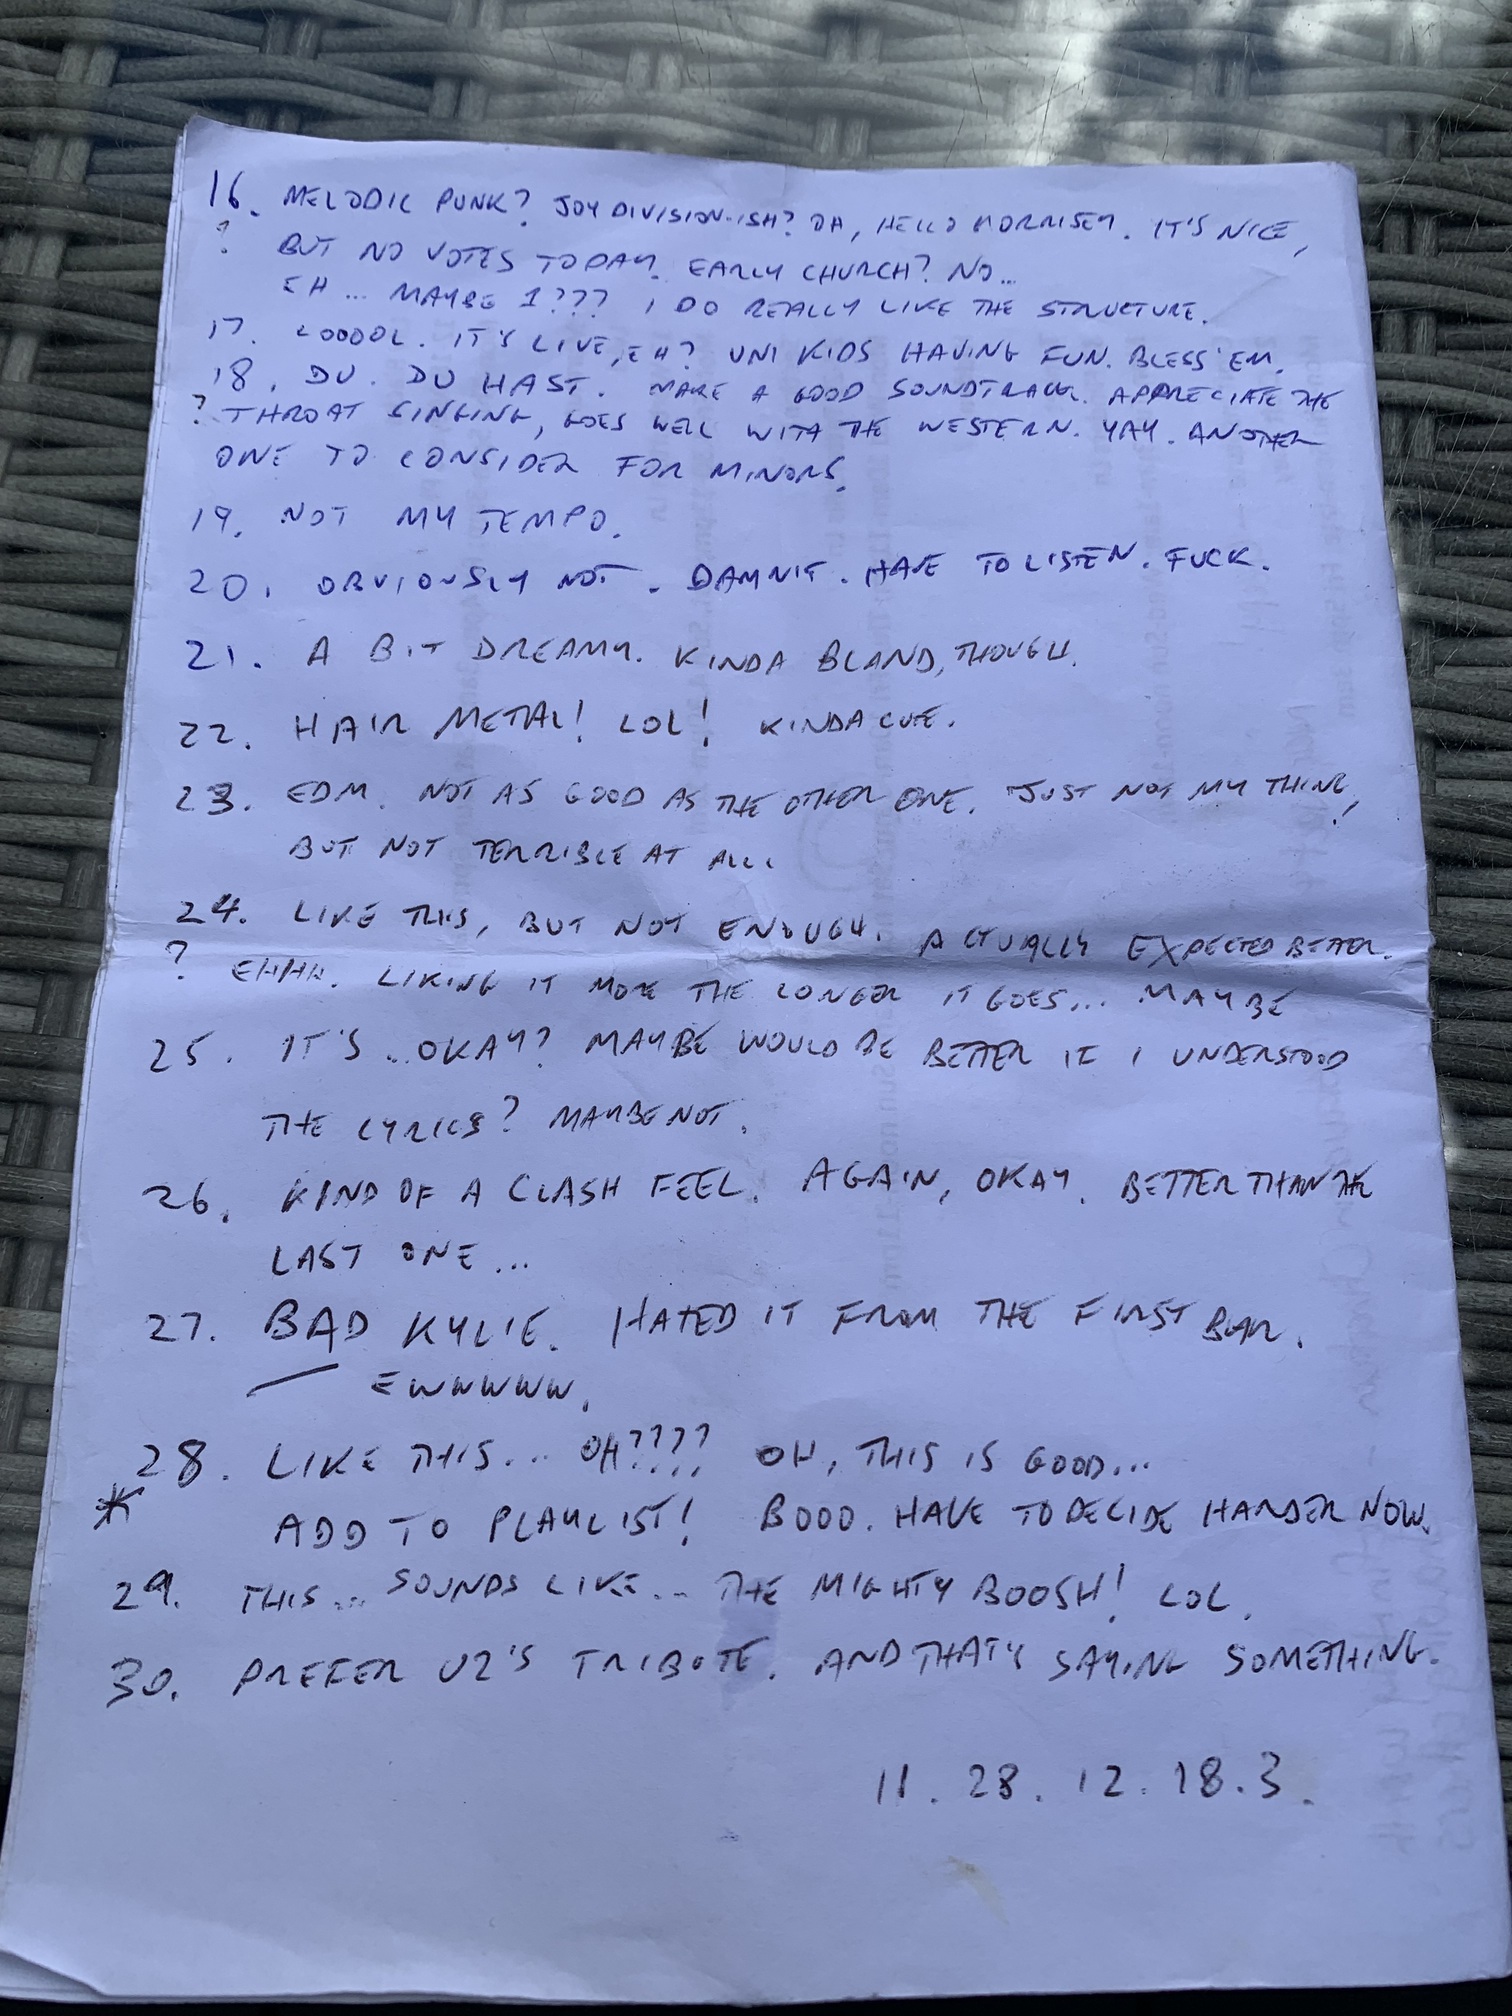 16. MELODIC PUNK? JOY DIVISION-ISH? OH, HELLO MORRISEY. IT'S NICE,
? BUT NO VOTES TODAY. EARLY CHURCH? NO...
EH... MAYBE 1??? I DO REALLY LIKE THE STRUCTURE.
17. LOOOOL. IT'S LIVE, EH? UNI KIDS HAVING FUN. BLESS 'EM.
18. DU. DU HAST. MAKE A GOOD SOUNDTRACK. APPRECIATE THE
? THROAT SINGING, GOES WELL WITH THE WESTERN. YAY. ANOTHER
ONE TO CONSIDER FOR MINORS.
19. NOT MY TEMPO.
20. OBVIOUSLY NOT. DAMNIT. HAVE TO LISTEN. FUCK.
21. A BIT DREAMY. KINDA BLAND, THOUGH.
22. HAIR METAL! LOL! KINDA CUTE.
23. EDM. NOT AS GOOD AS THE OTHER ONE. JUST NOT MY THING,
BUT NOT TERRIBLE AT ALL.
24. LIKE THIS, BUT NOT ENOUGH. ACTUALLY EXPECTED BETTER.
? EHHH. LIKING IT MORE THE LONGER IT GOES... MAYBE
25. IT'S...OKAY? MAYBE WOULD BE BETTER IF I UNDERSTOOD
THE LYRICS? MAYBE NOT.
26. KIND OF A CLASH FEEL. AGAIN, OKAY. BETTER THAN THE
LAST ONE...
27. BAD KYLIE. HATED IT FROM THE FIRST BAR.
— EWWWWW.
28. LIKE THIS... OH???? OH, THIS IS GOOD...
* ADD TO PLAYLIST! BOOO. HAVE TO DECIDE HARDER NOW.
29. THIS... SOUNDS LIKE... THE MIGHTY BOOSH! LOL.
30. PREFER U2'S TRIBUTE. AND THAT'S SAYING SOMETHING.
11. 28. 12. 18. 3.